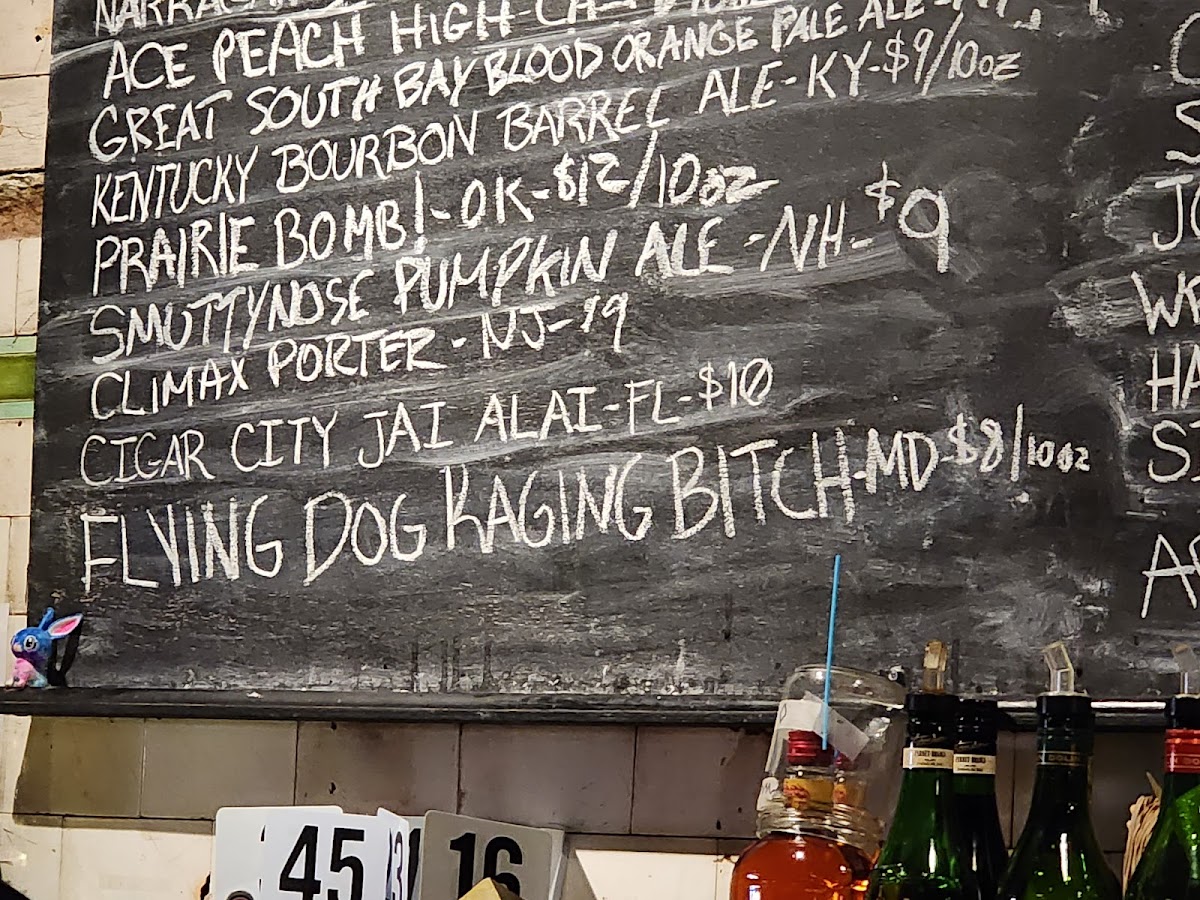 ACE PEACH HIGH-CA-
GREAT SOUTH BAY BLOOD ORANGE PALE ALE-NY-
KENTUCKY BOURBON BARREL ALE-KY-$9/10oz
PRAIRIE BOMB!-OK-$12/10oz
SMUTTYNOSE PUMPKIN ALE-NH-$9
CLIMAX PORTER-NJ-$9
CIGAR CITY JAI ALAI-FL-$10
FLYING DOG RAGING BITCH-MD-$8/10oz
45
16